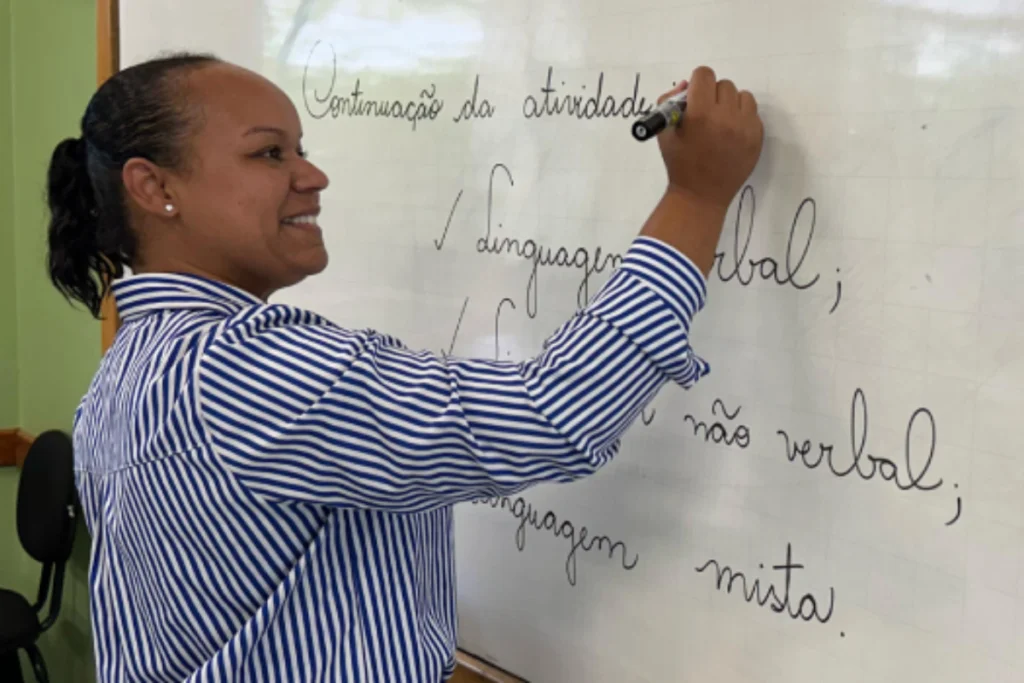 Continuação da atividade
✓ Linguagem verbal;
não verbal;
Linguagem mista.